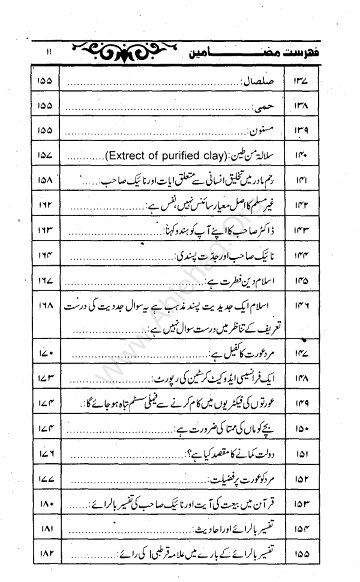 فہرست مضامین ۱۱
۱۳۷ صلصال:........ ۱۵۵
۱۳۸ حمی:........ ۱۵۵
۱۳۹ مسنون:........ ۱۵۵
۱۴۰ سلالۃ من طین:(Extrect of purified clay)........ ۱۵۷
۱۴۱ رحم مادر میں تخلیق انسانی سے متعلق آیات اور نائیک صاحب:........ ۱۵۸
۱۴۲ غیر مسلم کا اصل معیار سائنس نہیں، نفس ہے:........ ۱۶۲
۱۴۳ ڈاکٹر صاحب کا اپنے آپ کو ہندو کہنا:........ ۱۶۳
۱۴۴ نائیک صاحب اور جدت پسندی:........ ۱۶۴
۱۴۵ اسلام دین فطرت ہے:........ ۱۶۷
۱۴۶ اسلام ایک جدیدیت پسند مذہب ہے یہ سوال جددیت کی درست ۱۶۸
تعریف کے تناظر میں درست سوال نہیں ہے:........
۱۴۷ مرد عورت کا کفیل ہے:........ ۱۷۰
۱۴۸ ایک فرانسیسی ایڈوکیٹ کرسٹین کی رپورٹ:........ ۱۷۳
۱۴۹ عورتوں کی فیکٹریوں میں کام کرنے سے فیملی سسٹم تباہ ہو جائے گا:........ ۱۷۴
۱۵۰ بچے کو ماں کی ممتا کی ضرورت ہے:........ ۱۷۴
۱۵۱ دولت کمانے کا مقصد کیا ہے؟:........ ۱۷۶
۱۵۲ مرد کو عورت پر فضیلت:........ ۱۷۷
۱۵۳ قرآن میں بیعت کی آیت اور نائیک صاحب کی تفسیر بالرائے:........ ۱۸۰
۱۵۴ تفسیر بالرائے اور احادیث:........ ۱۸۱
۱۵۵ تفسیر بالرائے کے بارے میں علامہ قرطبی کی رائے:........ ۱۸۲